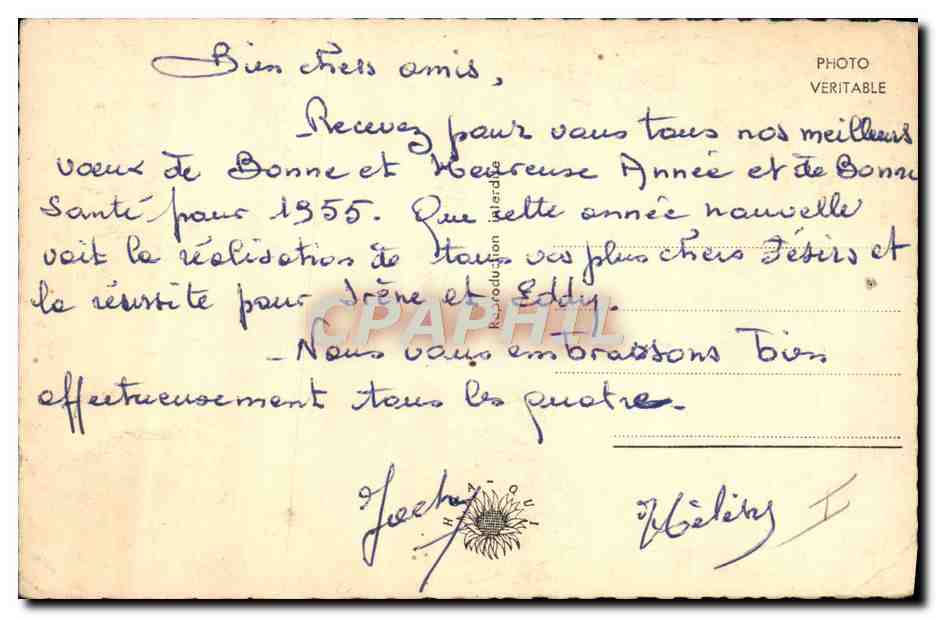 Bien chers amis,
PHOTO
VERITABLE
Recevez pour vous tous nos meilleurs
vœux de Bonne et Heureuse Année et de Bonne
Santé pour 1955. Que cette année nouvelle
voit la réalisation de tous vos plus chers désirs et
la réussite pour Irène et Eddy.
- Nous vous embrassons bien
affectueusement tous les quatre.
Reproduction interdite
CPAPHIL